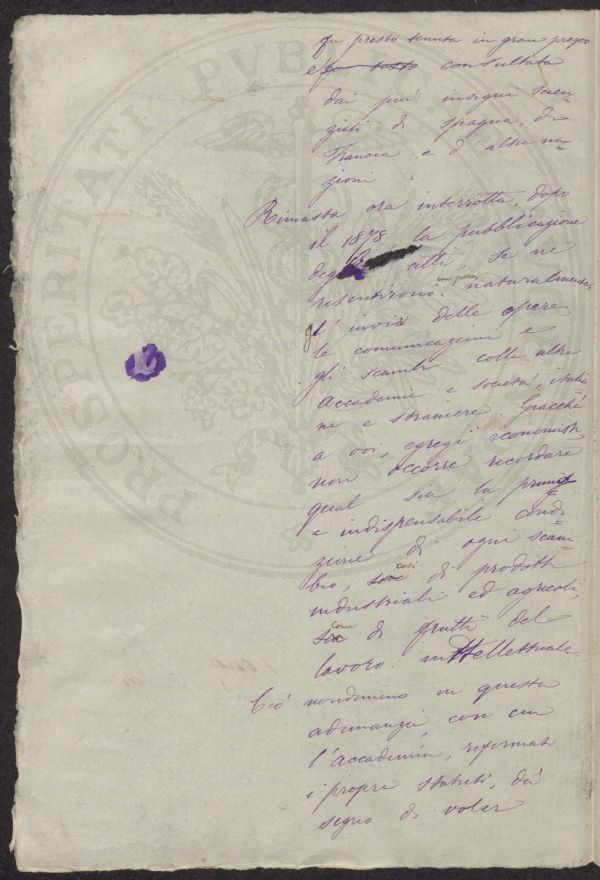 fu presto tenuta in gran pregio
e fu tosto consultata
dai più insigni scien-
ziati di Spagna, di
Francia e d'altre na-
zioni.
Rimasta ora interrotta, dopo
il 1878 la pubblicazione
degli atti, se ne
risentirono naturalmente
gl' invii delle opere,
le comunicazioni e
gli scambi colle altre
Accademie e società, italia
ne e straniere. Giacchè
a voi, egregi economisti,
non occorre ricordare
qual sia la prima
e indispensabile condi-
zione di ogni scam-
bio, sia così di prodotti
industriali ed agricoli,
sia come di frutti del
lavoro intellettuale.
Ciò nondimeno in questa
adunanza, con cui
l'Accademia, riformati
i propri statuti, dà
segno di voler
PROSPERITATI PUBLICAE